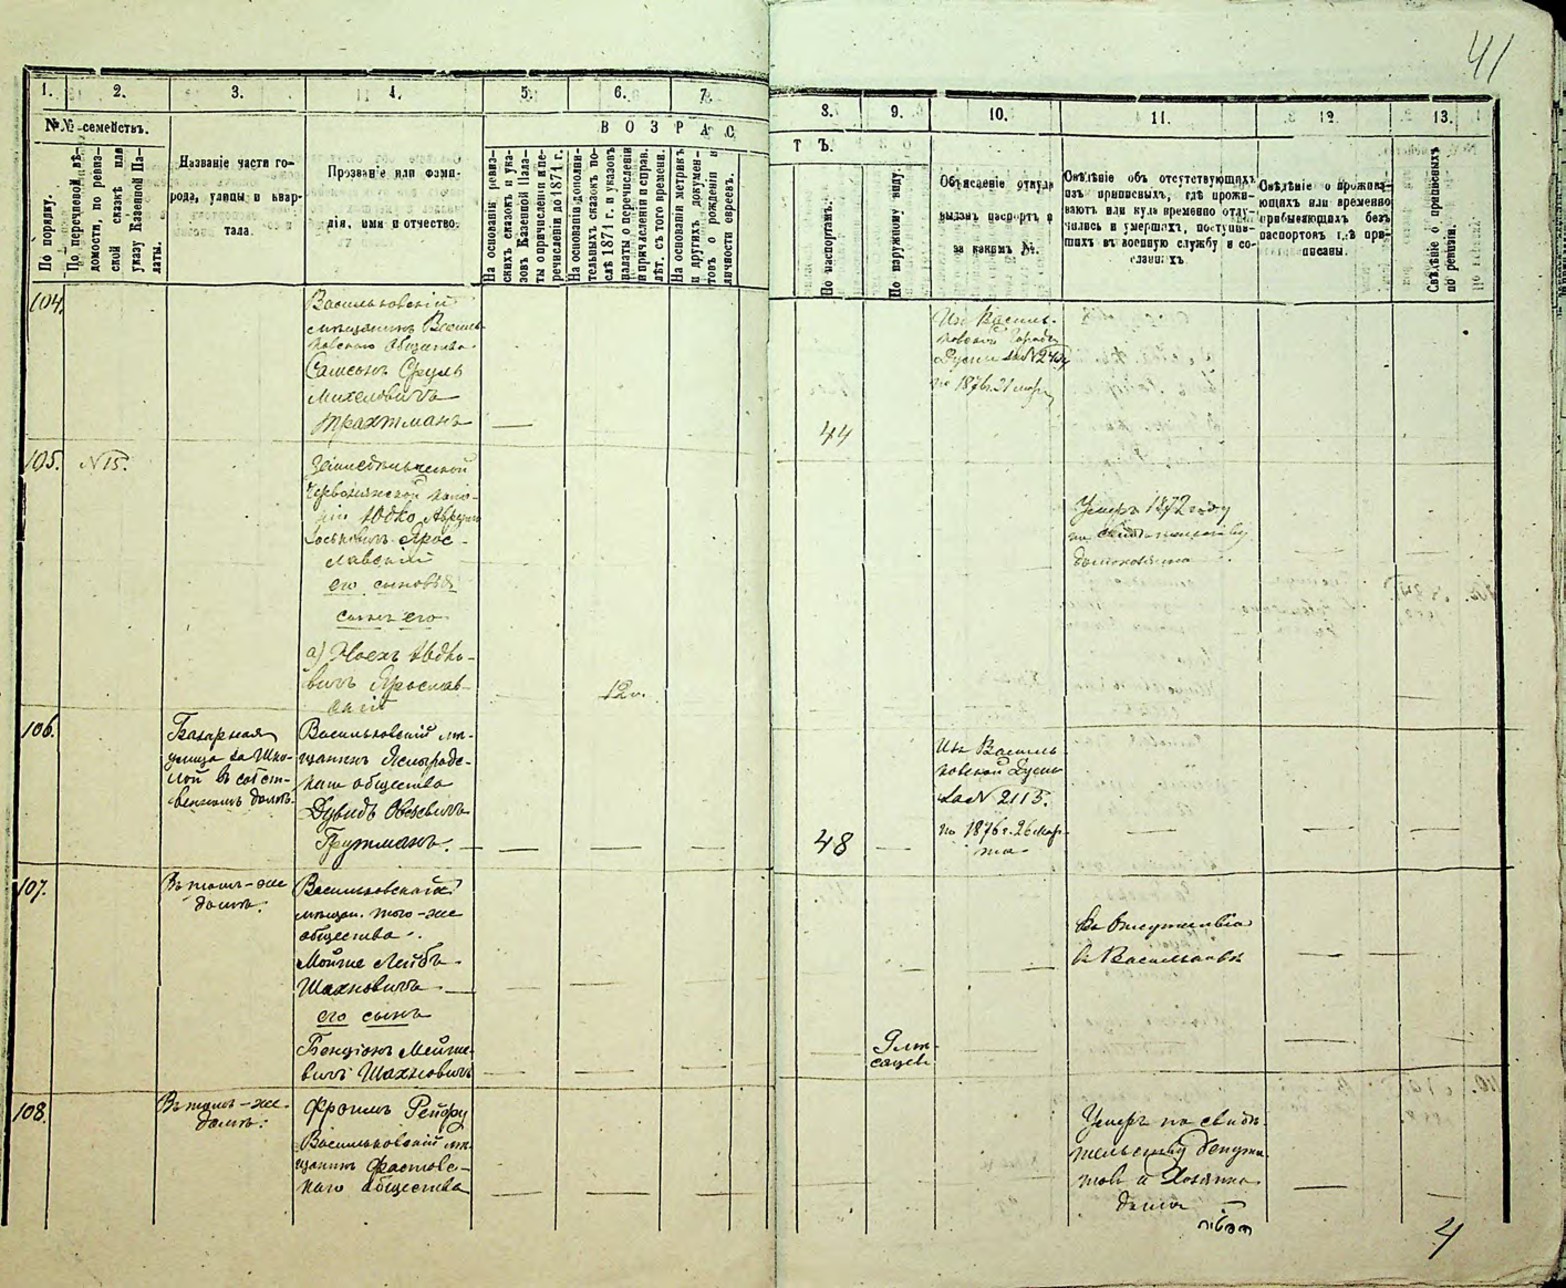 41
1. 2. 3. 4. 5. 6. 7. 8. 9. 10. 11. 12. 13.
№№ семействъ.
ВОЗРАС
ТЪ.
По порядку.
По перечневой вѣ-
домости, по ревиз-
ской сказкѣ или
указу Казенной Па-
латы.
Названіе части го-
рода, улицы и квар-
тала.
Прозваніе или фами-
лія, имя и отчество.
На основаніи ревиз-
скихъ сказокъ и ука-
зовъ Казенной Пала-
ты о причисленіи и пе-
речисленіи до 1871 г.
На основаніи дополни-
тельныхъ сказокъ по-
слѣ 1871 г. и указовъ
палаты о перечисленіи
и причисленіи и справ.
лѣт. съ того времени.
На основаніи метрикъ
и другихъ докумен-
товъ о рожденіи и
личности евреевъ.
По паспортамъ.
По наружному виду.
Объясненіе откуда
выданъ паспортъ и
за какимъ №.
Свѣдѣніе объ отсутствующихъ
изъ приписныхъ, гдѣ прожи-
ваютъ или куда временно отлу-
чились и умершихъ, поступив-
шихъ въ военную службу и со-
сланныхъ
Свѣдѣніе о прожива-
ющихъ или временно
пребывающихъ безъ
паспортовъ гдѣ при-
писаны.
Свѣдѣніе о пришенныхъ
по ревизіи.
104.
Васильковскій
мѣщанинъ Василь-
ковскаго общества
Самсонъ Сруль
Михелевичъ
Трахтманъ —
44
Изъ Василь-
ковской Город.
Думы за №
по 1876 г. 21 мар.
105. №15.
Земледѣльческой
коло-
ніи Юдко Абрум
Яро-
славскій
его сыновья
сынъ его
а) Ноехъ Юдко-
вичъ Ярослав-
скій
12 л.
Умеръ 1872 году
по
106.
Базарная
улица за Шко-
лой въ собст-
венномъ домѣ.
Васильковскій мѣ-
щанинъ
каго общества
Дувидъ Овсеевичъ
Грутманъ. —
48
Изъ Василь-
ковской Думы
за № 2115.
по 1876 г. 26 мар-
та
107.
Въ томъ-же
домѣ.
Васильковскій
мѣщан. того-же
общества.
Мойше Лейбъ
Шахновичъ —
его сынъ
Бенціонъ Мейше-
вичъ Шахновичъ
9 мѣ-
сяцевъ
Въ отсутствіи
въ Васильковѣ
108.
Въ томъ-же
домѣ.
Фроимъ Рейфу
Васильковскій мѣ-
щанинъ Фастовс-
каго общества
Умеръ по свидѣ-
тельству депута-
товъ и Хозяина
дома
4